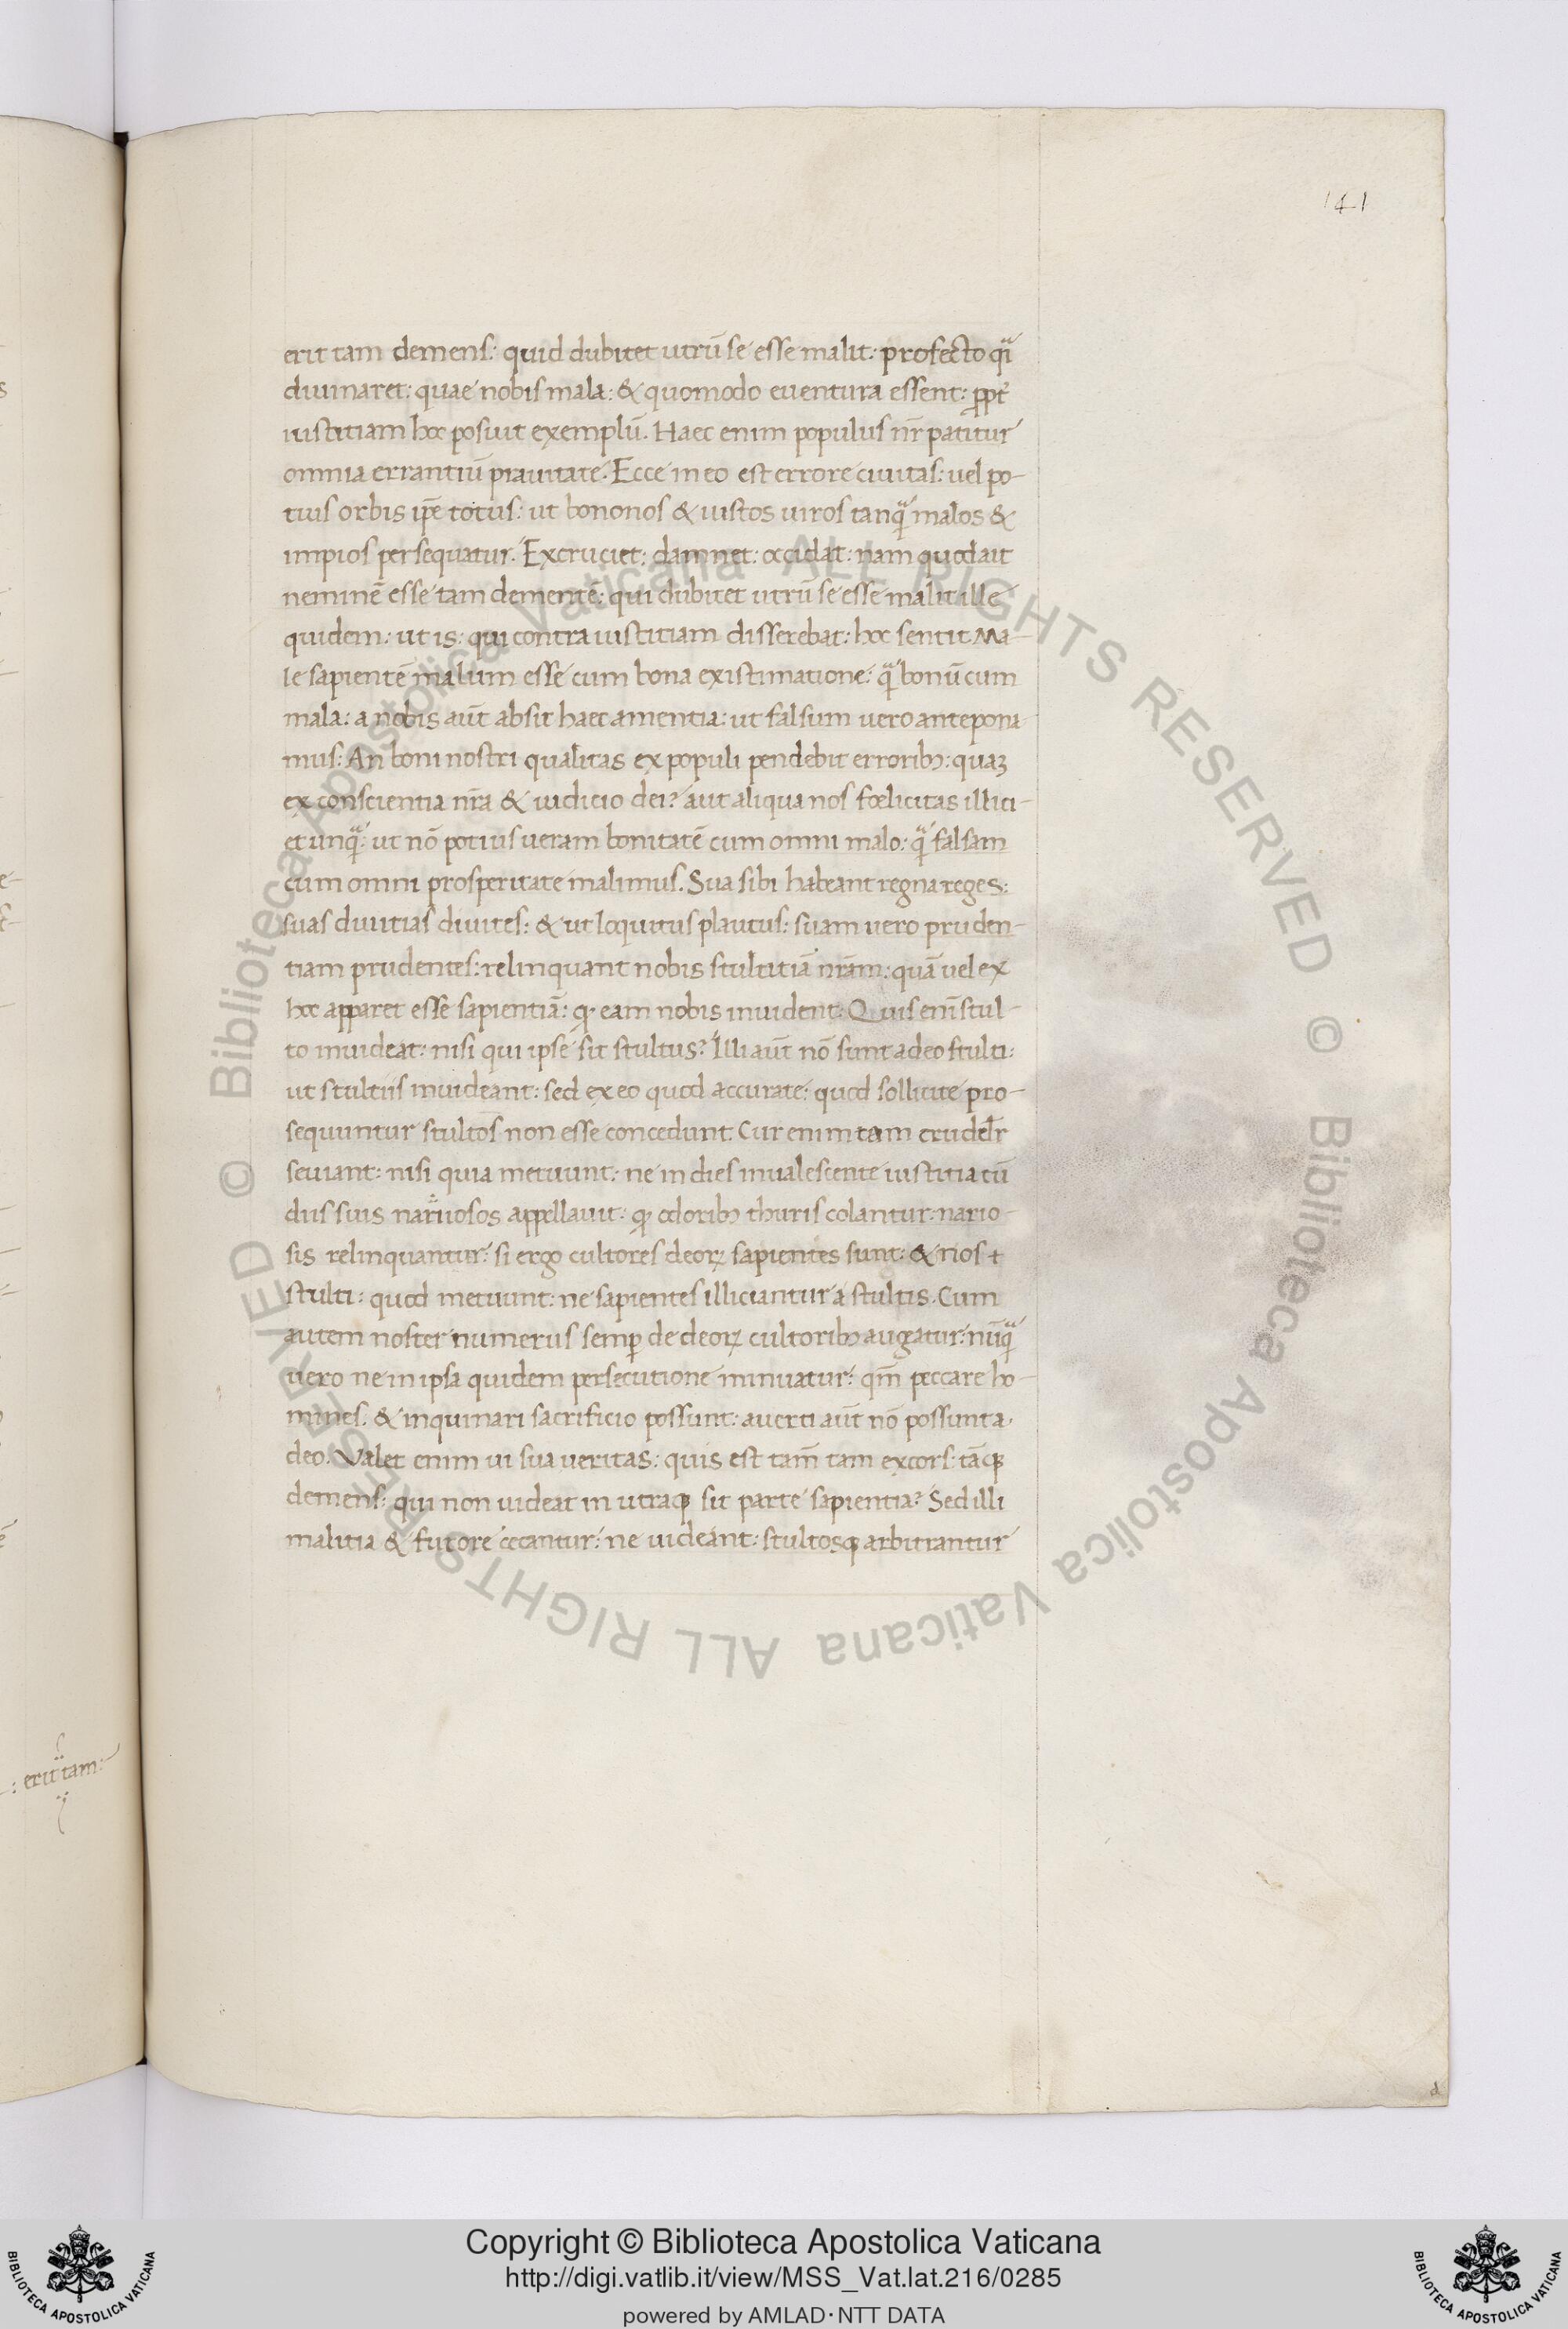 141
erit tam demens: quid dubitet utrū se esse malit: profecto qͣi
diuinaret: quae nobis mala: & quomodo euentura essent: ꝓpt̄
iustitiam hoc posuit exemplū. Haec enim populus nr̄ patitur
omnia errantiū prauitate. Ecce in eo est errore ciuitas: uel po-
tius orbis ip̄e totus: ut bononos & iustos uiros tanqͣ malos &
impios persequatur. Excruciet: damnet: occidat: nam quod ait
neminē esse tam dementē: qui dubitet utrū se esse malit ille
quidem: ut is: qui contra iustitiam disserebat: hoc sentit Ma-
le sapientē malum esse cum bona existimatione: qͣ bonū cum
mala: a nobis aūt absit haec amentia: ut falsum uero antepona
mus: An boni nostri qualitas ex populi pendebit erroribꝫ: quaꝫ
ex conscientia nr̄a & iudicio dei? aut aliqua nos foelicitas illici-
et unqͣ: ut nō potius ueram bonitatē cum omni malo: qͣ falsam
cum omni prosperitate malimus. Sua sibi habeant regna reges:
suas diuitias diuites: & ut loquitus plautus: suam uero pruden-
tiam prudentes: relinquant nobis stultitiā nr̄am: quā uel ex
hoc apparet esse sapientiā: ꝙ eam nobis inuident: Quis enī stul-
to inuideat: nisi qui ipse sit stultus? Illi aūt nō sunt adeo stulti:
ut stultis inuideant: sed ex eo quod accurate: quod sollicite pro-
sequuntur stultos non esse concedunt. Cur enim tam crudelr̄
seuiant: nisi quia metuunt: ne in dies inualescente iustitia cū
diis suis nariuosos appellauit: ꝙ odoribꝫ thuris colantur: nario-
sis relinquantur: si ergo cultores deoꝝ sapientes sunt: & nos +
stulti: quod metuunt: ne sapientes illiciantur a stultis. Cum
autem noster numerus semp̄ de deoꝝ cultoribꝫ augatur: nūqͣ
uero ne in ipsa quidem persecutione minuatur: qm̄ peccare ho-
mines. & inquinari sacrificio possunt: auerti aūt nō possunt a
deo. Valet enim ui sua ueritas: quis est tam̄ tam excors: tāqꝫ
demens: qui non uideat in utraqꝫ sit parte sapientia? Sed illi
malitia & furore cecantur: ne uideant: stultosqꝫ arbitrantur
: erit tam:
d
© Biblioteca Apostolica Vaticana ALL RIGHTS RESERVED © Biblioteca Apostolica Vaticana ALL RIGHTS RESERVED
Copyright © Biblioteca Apostolica Vaticana
http://digi.vatlib.it/view/MSS_Vat.lat.216/0285
powered by AMLAD·NTT DATA
BIBLIOTECA APOSTOLICA VATICANA
BIBLIOTECA APOSTOLICA VATICANA